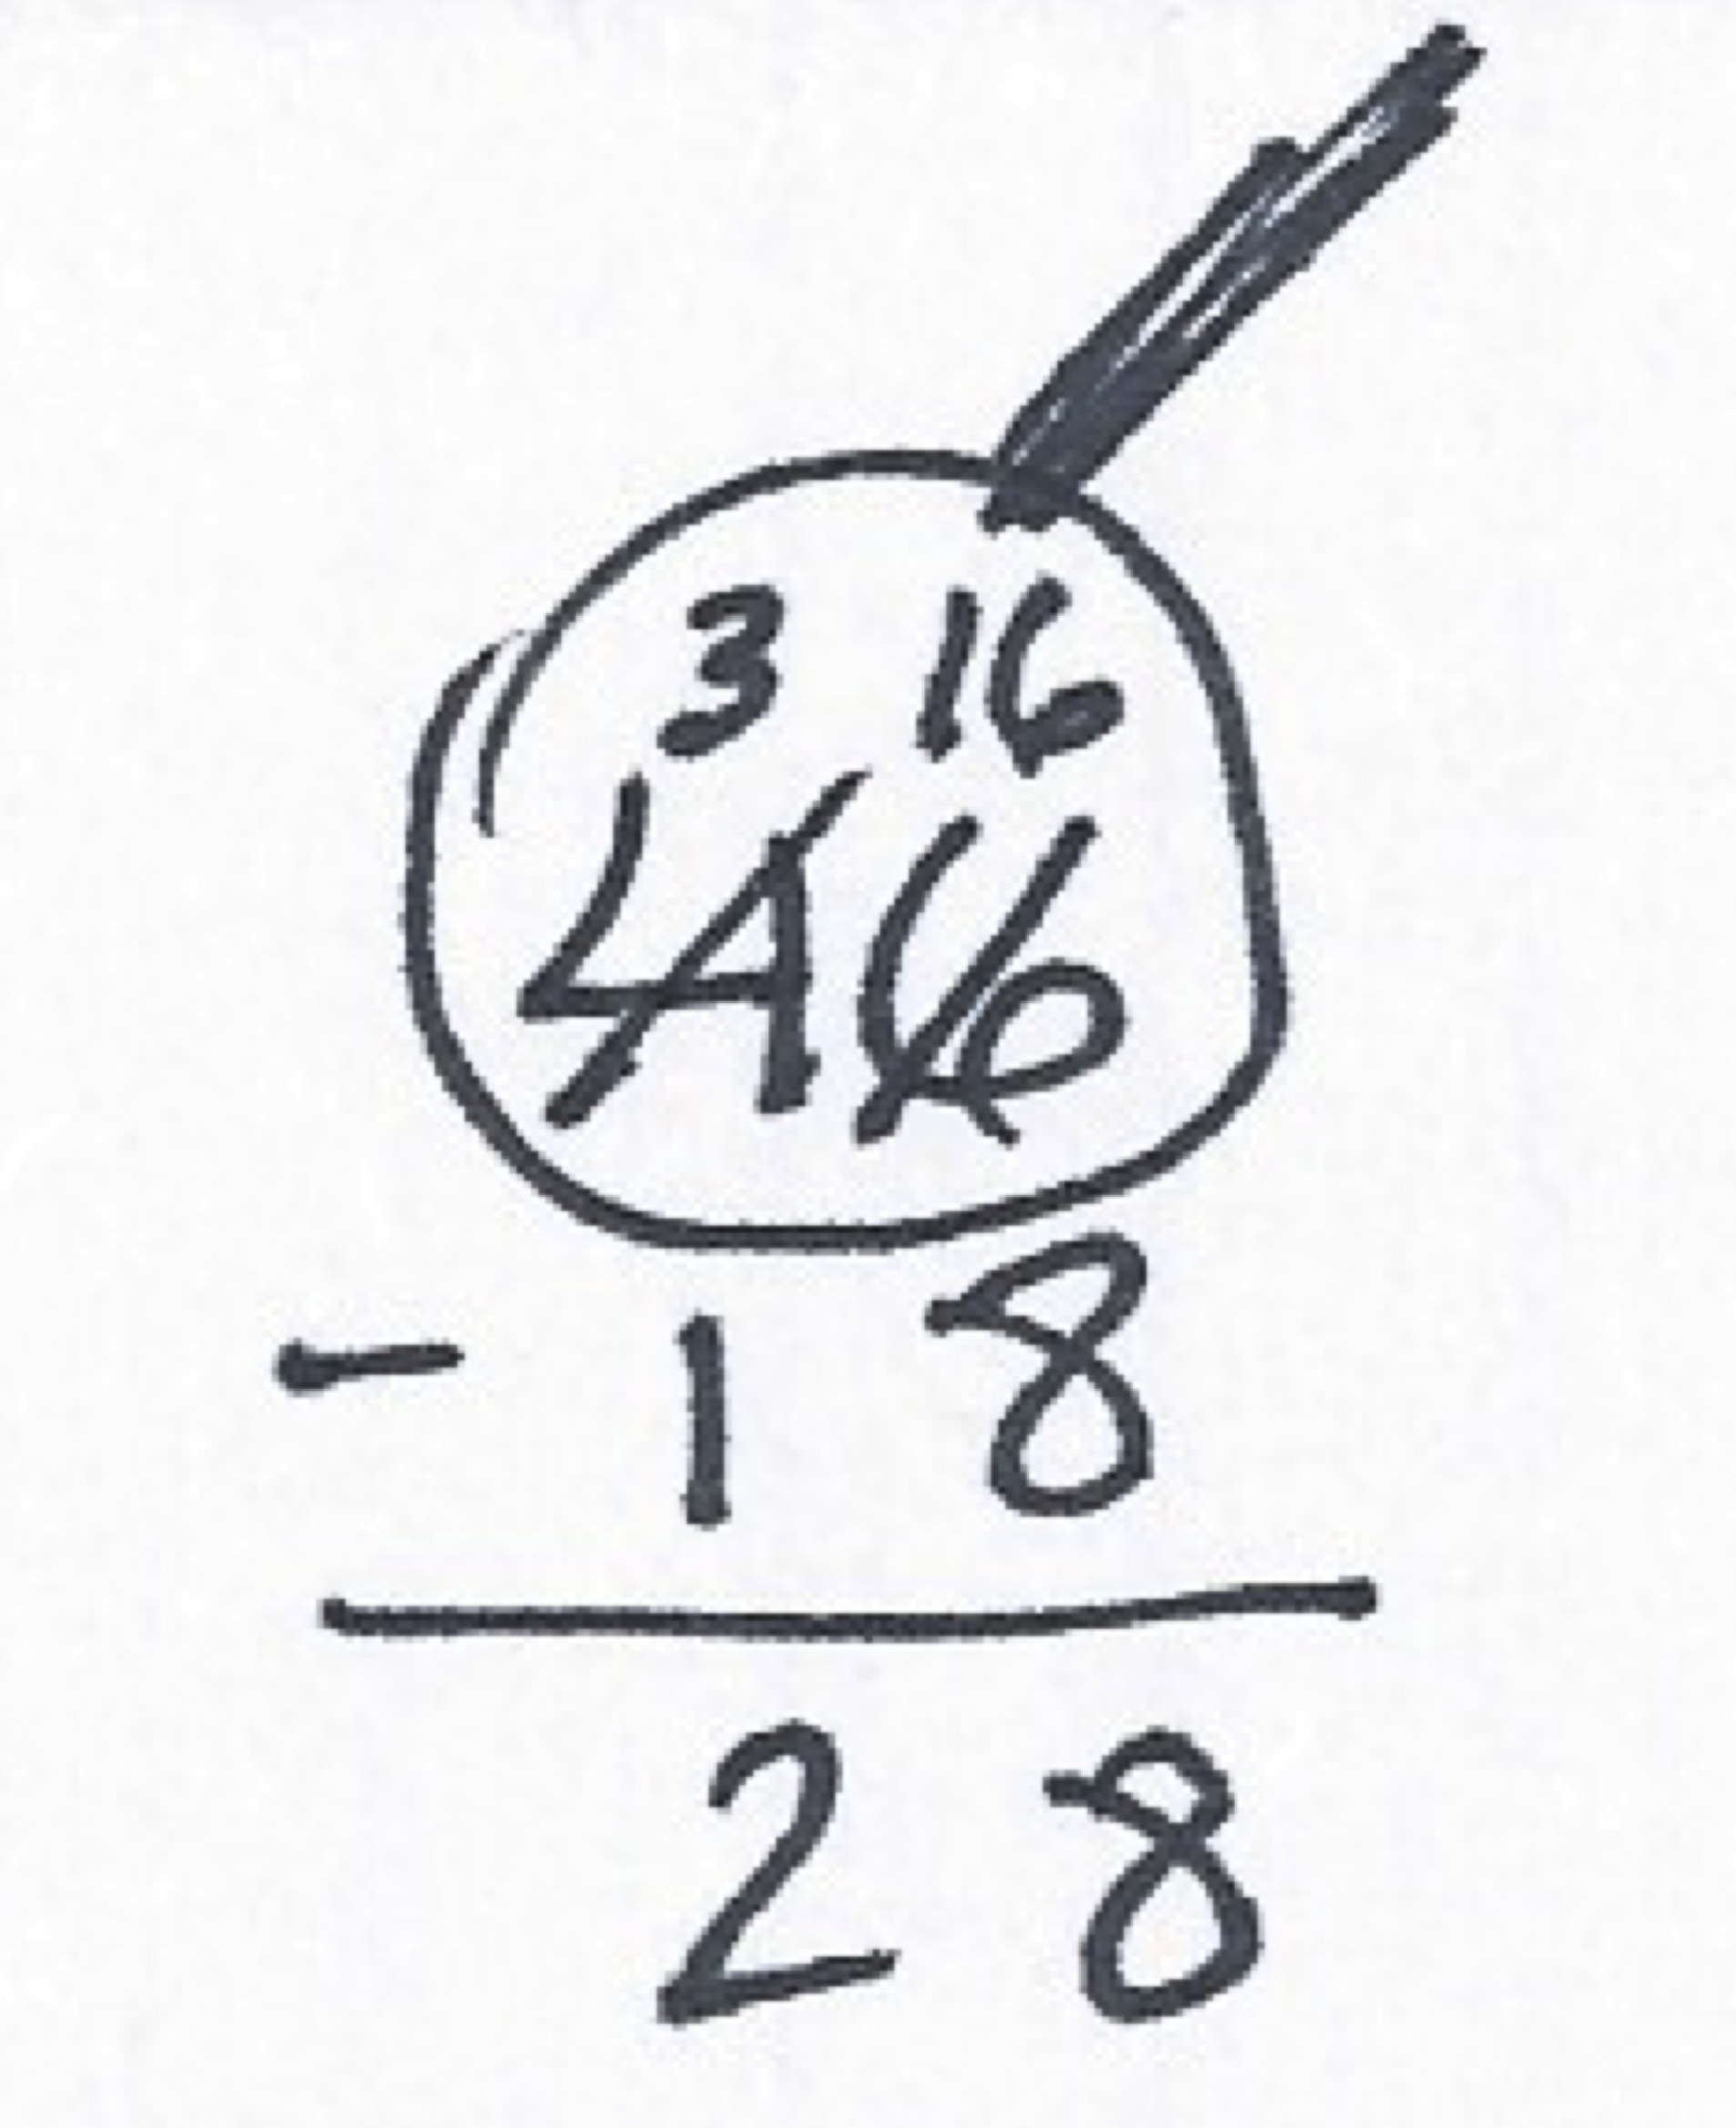 3 16
46
- 18
28